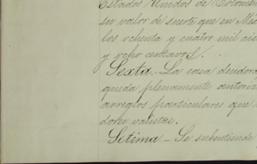 Estados Unidos de Colombia
ser valor de suerte que en Me
los ochenta y cuatro mil
y ocho centavos.
Sexta - La casa deudora
queda plenamente autori
arreglos particulares que
dicho valores.
Setima - Se subentiende